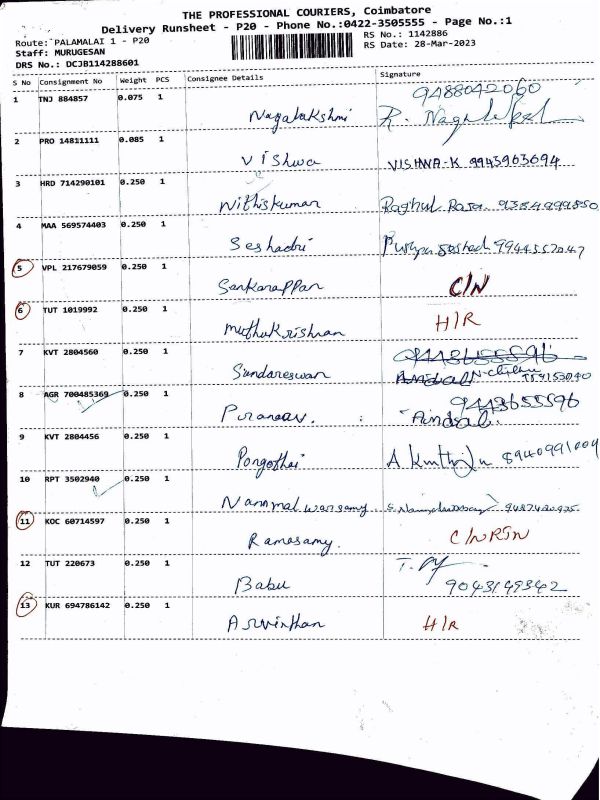 THE PROFESSIONAL COURIERS, Coimbatore
Delivery Runsheet - P20 - Phone No.:0422-3505555 - Page No.:1
Route: PALAMALAI 1 - P20
RS No.: 1142886
Staff: MURUGESAN
RS Date: 28-Mar-2023
DRS No.: DCJB114288601
S No Consignment No Weight PCS Consignee Details Signature
9488042060
1 TNJ 884857 0.075 1 Nagalakshmi R.
2 PRO 14811111 0.085 1 Vishwa VISHWA-K 9943963694
3 HRD 714290101 0.250 1 Nithiskuman Raghul Raja
4 MAA 569574403 0.250 1 Seshadri
5 VPL 217679059 0.250 1 Sankarappan C/N
6 TUT 1019992 0.250 1 Muthukrishnan H/R
7 KVT 2804560 0.250 1 Sundareswan
8 AGR 700485369 0.250 1 9443655596
9 KVT 2804456 0.250 1 Pongothai A. 8940991004
10 RPT 3502940 0.250 1
11 KOC 60714597 0.250 1 Ramasamy. C/N RTN
12 TUT 220673 0.250 1 Babu T.
9043149342
13 KUR 694786142 0.250 1 Arvinthan H/R